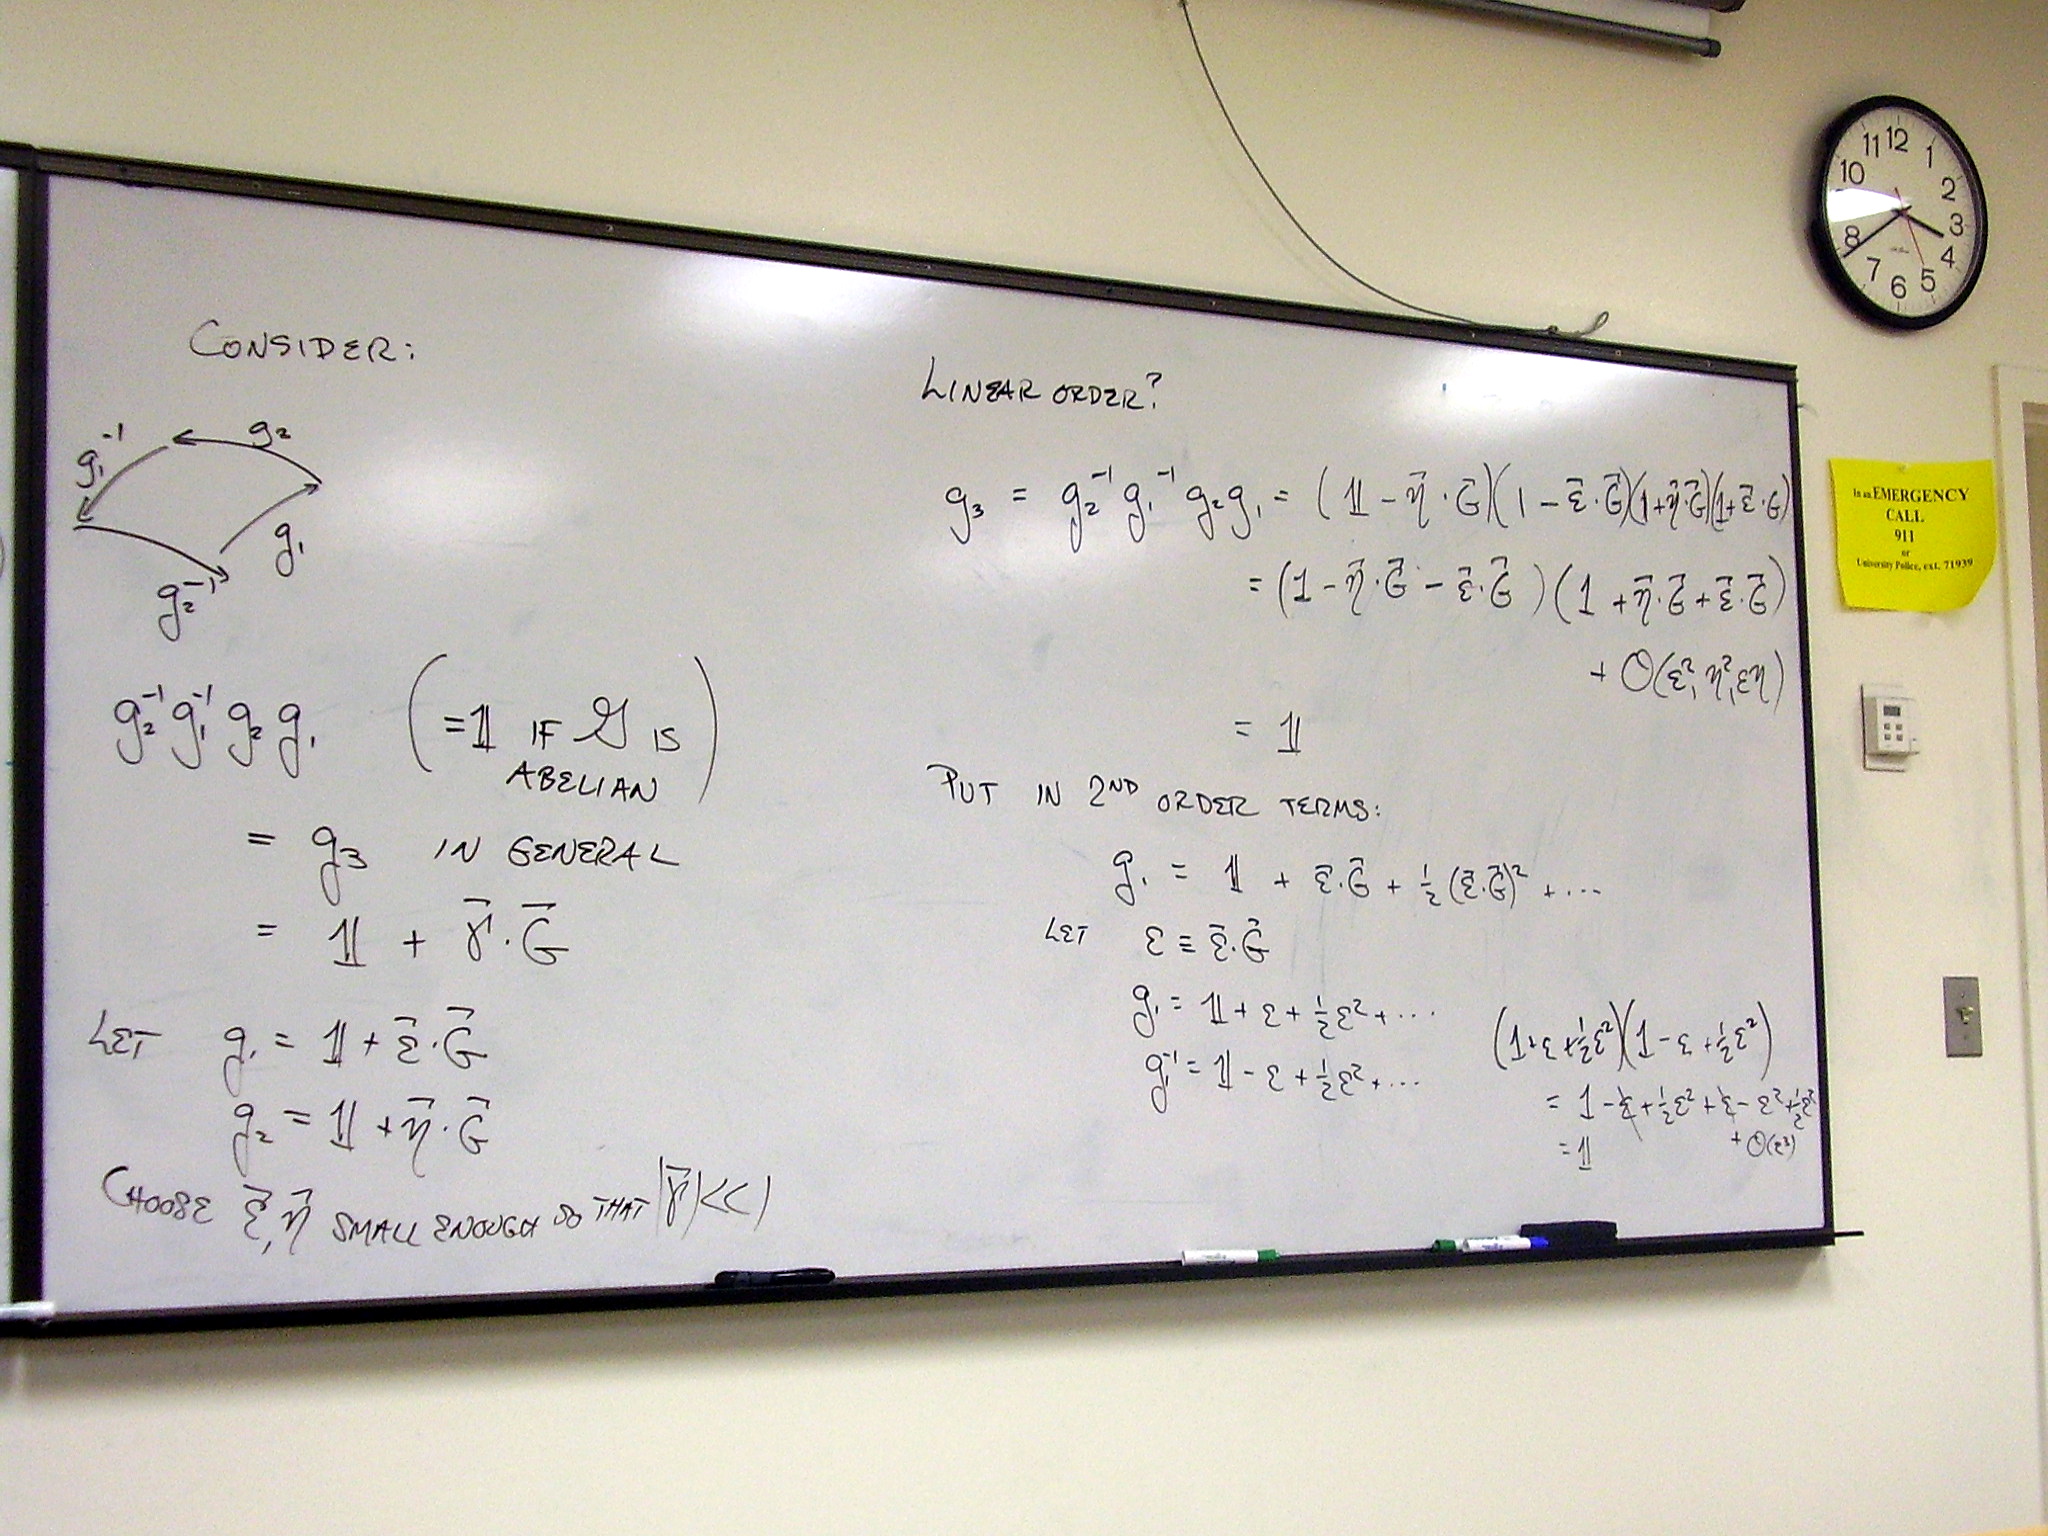 CONSIDER:
g₂
g₁⁻¹
g₁
g₂⁻¹
g₂⁻¹ g₁⁻¹ g₂ g₁ (= 𝟙 IF 𝒢 IS
ABELIAN)
= g₃ IN GENERAL
= 𝟙 + γ⃗·G⃗
LET g₁ = 𝟙 + ε⃗·G⃗
g₂ = 𝟙 + η⃗·G⃗
CHOOSE ε⃗, η⃗ SMALL ENOUGH SO THAT |γ⃗| << 1
LINEAR ORDER?
g₃ = g₂⁻¹ g₁⁻¹ g₂ g₁ = (𝟙 - η⃗·G⃗)(1 - ε⃗·G⃗)(1 + η⃗·G⃗)(1 + ε⃗·G)
= (1 - η⃗·G⃗ - ε⃗·G⃗)(1 + η⃗·G⃗ + ε⃗·G⃗)
+ O(ε², η², εη)
= 𝟙
PUT IN 2ND ORDER TERMS:
g₁ = 𝟙 + ε⃗·G⃗ + ½(ε⃗·G⃗)² + ...
LET ε ≡ ε⃗·G⃗
g₁ = 𝟙 + ε + ½ε² + ...
g₁⁻¹ = 𝟙 - ε + ½ε² + ...
(1 + ε + ½ε²)(1 - ε + ½ε²)
= 1 - ε + ½ε² + ε - ε² + ½ε²
+ O(ε³)
= 𝟙
12
1
2
3
4
5
6
7
8
10
11
In an EMERGENCY
CALL
911
or
University Police, ext. 71939